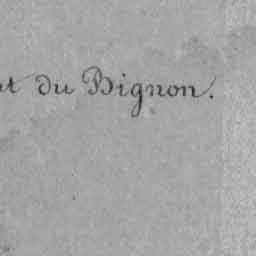 du Bignon.